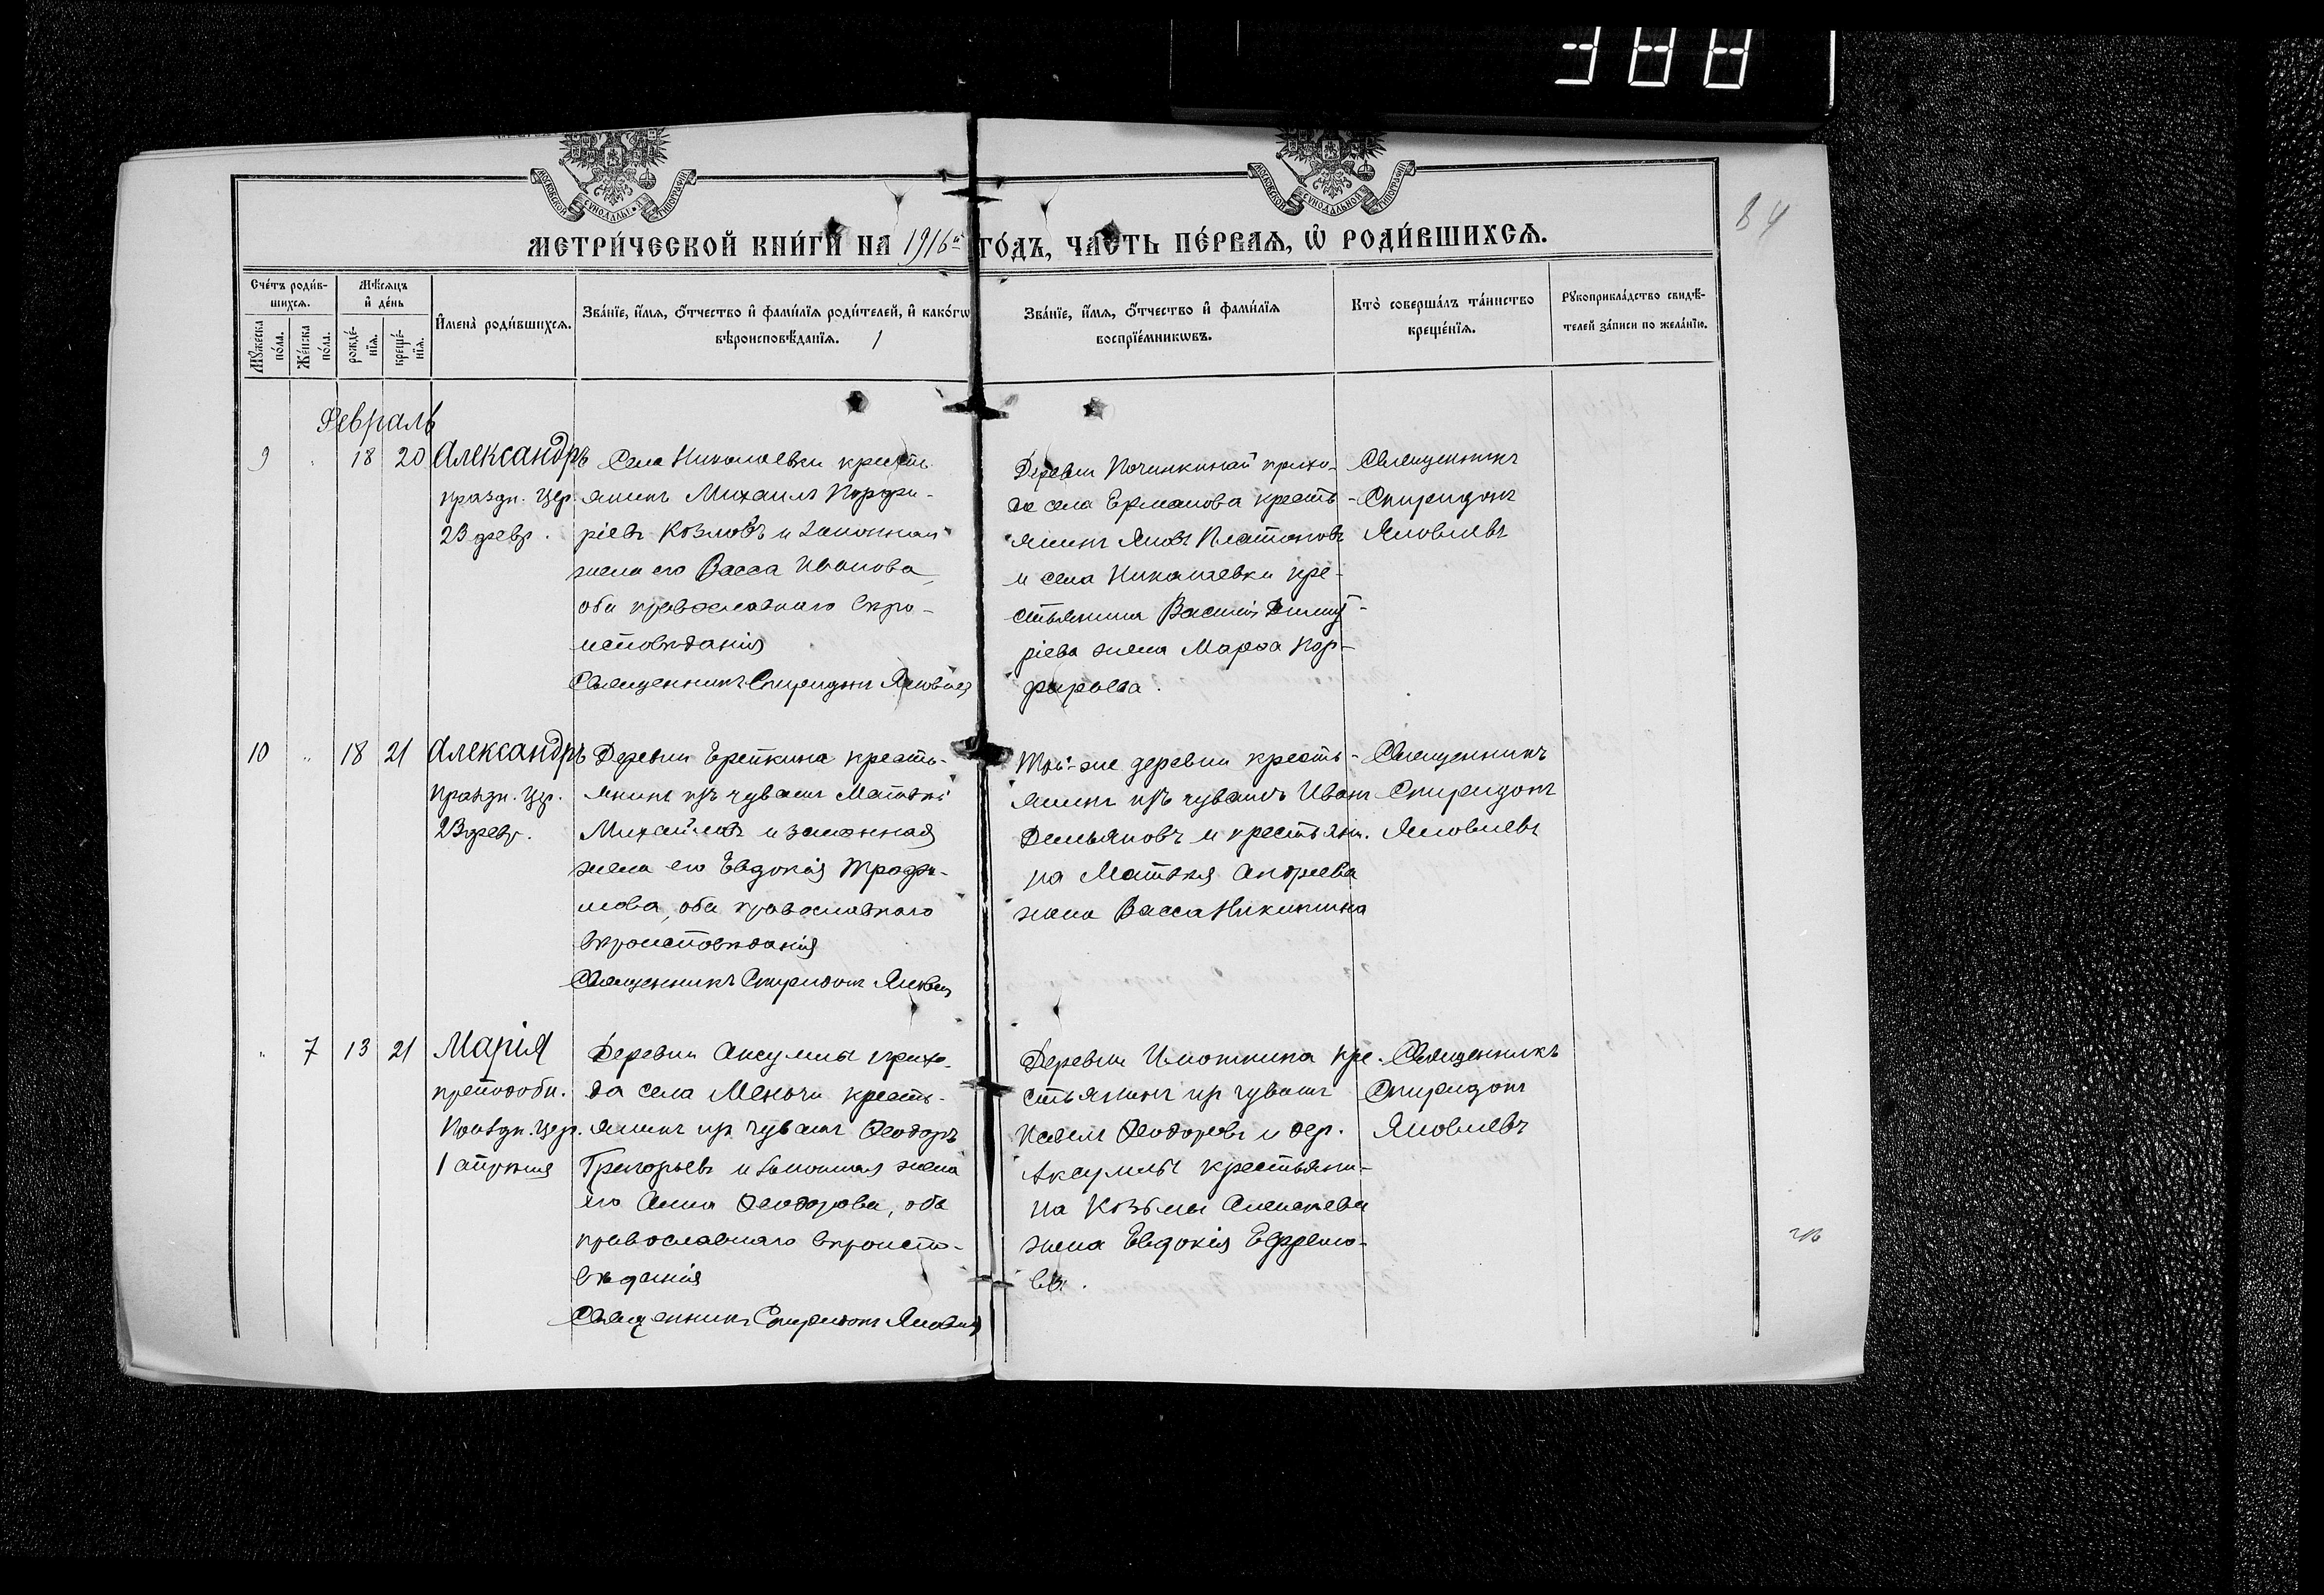 388
МОСКОВСКОЙ СѴНОДАЛЬНОЙ ТИПОГРАФІИ
МОСКОВСКОЙ СѴНОДАЛЬНОЙ ТИПОГРАФІИ
84
МЕТРИ́ЧЕСКОЙ КНИ́ГИ НА 1916й ГО́ДЪ, ЧА́СТЬ ПЕ́РВАѦ, Ѡ РОДИ́ВШИХСѦ.
Сче́тъ роди́в-
шихсѧ.
Мꙋ́жеска по́ла.
Же́нска по́ла.
Мѣ́сѧцъ
и҆ де́нь
рожде́-
нїѧ.
креще́-
нїѧ.
И҆мена̀ роди́вшихсѧ.
Зва́нїе, и҆́мѧ, ѻ҆́тчество и҆ фами́лїѧ роди́телей, и҆ како́гѡ
вѣроисповѣ́данїѧ. 1
Зва́нїе, и҆́мѧ, ѻ҆́тчество и҆ фами́лїѧ
воспрїе́мникѡвъ.
Кто̀ соверша́лъ та́инство
креще́нїѧ.
Рꙋкоприкла́дство свидѣ́-
телей за́писи по жела́нїю.
Февраль
9 " 18 20 Александръ
праздн. Цер.
23 февр.
Села Николаевки кресть-
янинъ Михаилъ Порфи-
ріевъ Козловъ и законная
жена его Васса Иванова,
оба православнаго веро-
исповѣданія
Священникъ Спиридонъ Яковлев
Деревни Починкиной прихо-
да села Ермакова кресть-
янинъ Яковъ Платоновъ
и села Николаевки кре-
стьянина Василія Димит-
ріева жена Марѳа Пор-
фирьева.
Священникъ
Спиридонъ
Яковлевъ
10 " 18 21 Александръ
Праздн. Цер.
23 февр.
Деревни Ерепкина кресть-
янинъ изъ чувашъ Матвѣй
Михайловъ и законная
жена его Евдокія Трофи-
мова, оба православнаго
вѣроисповѣданія
Священникъ Спиридонъ Яковлев
Той-же деревни кресть-
янинъ изъ чувашъ Иванъ
Демьяновъ и крестьяни-
на Матвѣя Андреева
жена Васса Никитина
Священникъ
Спиридонъ
Яковлевъ
" 7 13 21 Марія
преподобн.
Праздн. Цер.
1 апрѣля
Деревни Аксумлы прихо-
да села Меньчи кресть-
янинъ изъ чувашъ Ѳеодоръ
Григорьевъ и законная жена
его Анна Ѳеодорова, оба
православнаго вѣроиспо-
вѣданія
Священникъ Спиридонъ Яковлев
Деревни кре-
стьянинъ из чувашъ
Павелъ Ѳеодоровъ и дер.
Аксумлы крестьяни-
на Козьмы Алексѣева
жена Евдокія Ефремо-
ва.
Священникъ
Спиридонъ
Яковлевъ